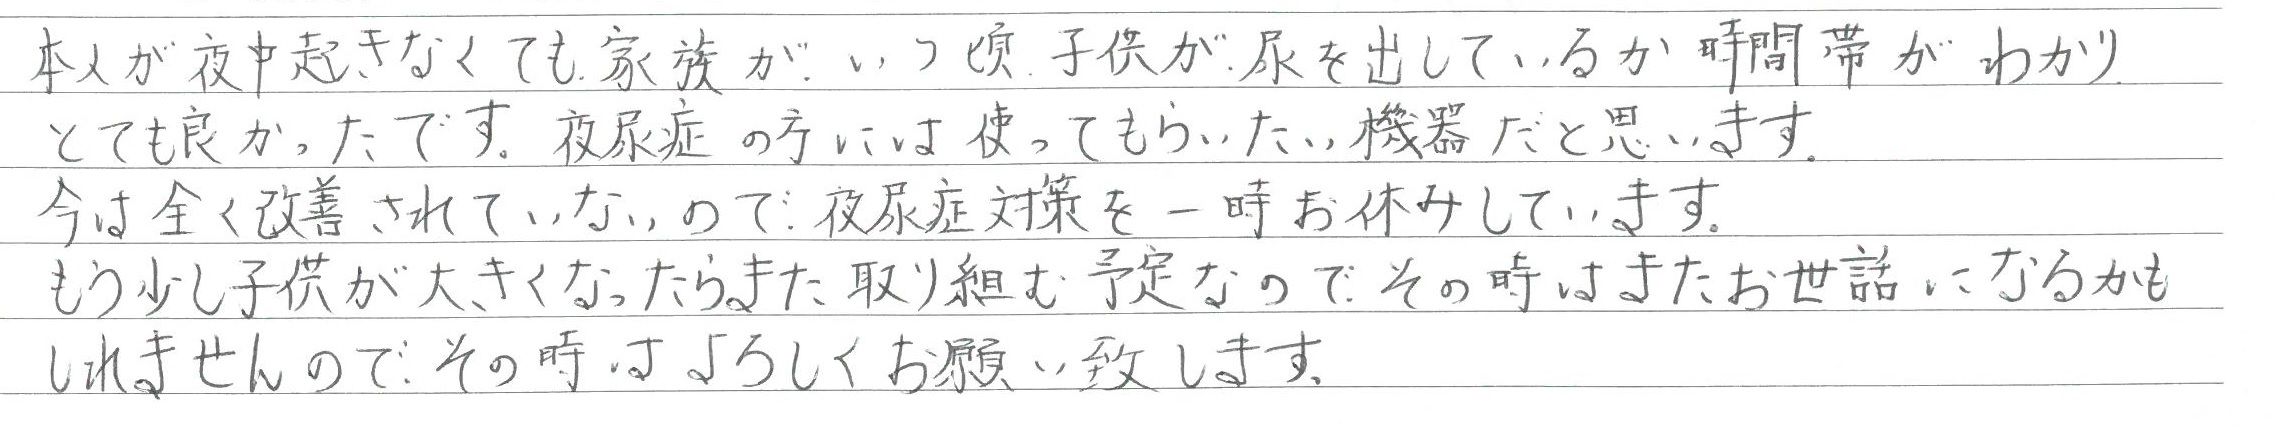 本人が夜中起きなくても、家族が、いつ頃、子供が、尿を出しているか時間帯がわかり、
とても良かったです。夜尿症の方には使ってもらいたい機器だと思います。
今は全く改善されていないので、夜尿症対策を一時お休みしています。
もう少し子供が大きくなったらまた取り組む予定なので、その時はまたお世話になるかも
しれませんので、その時はよろしくお願い致します。